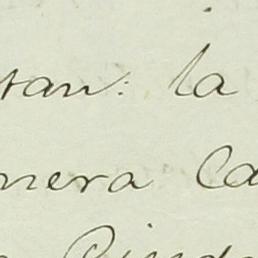 tan: la
nera Ca